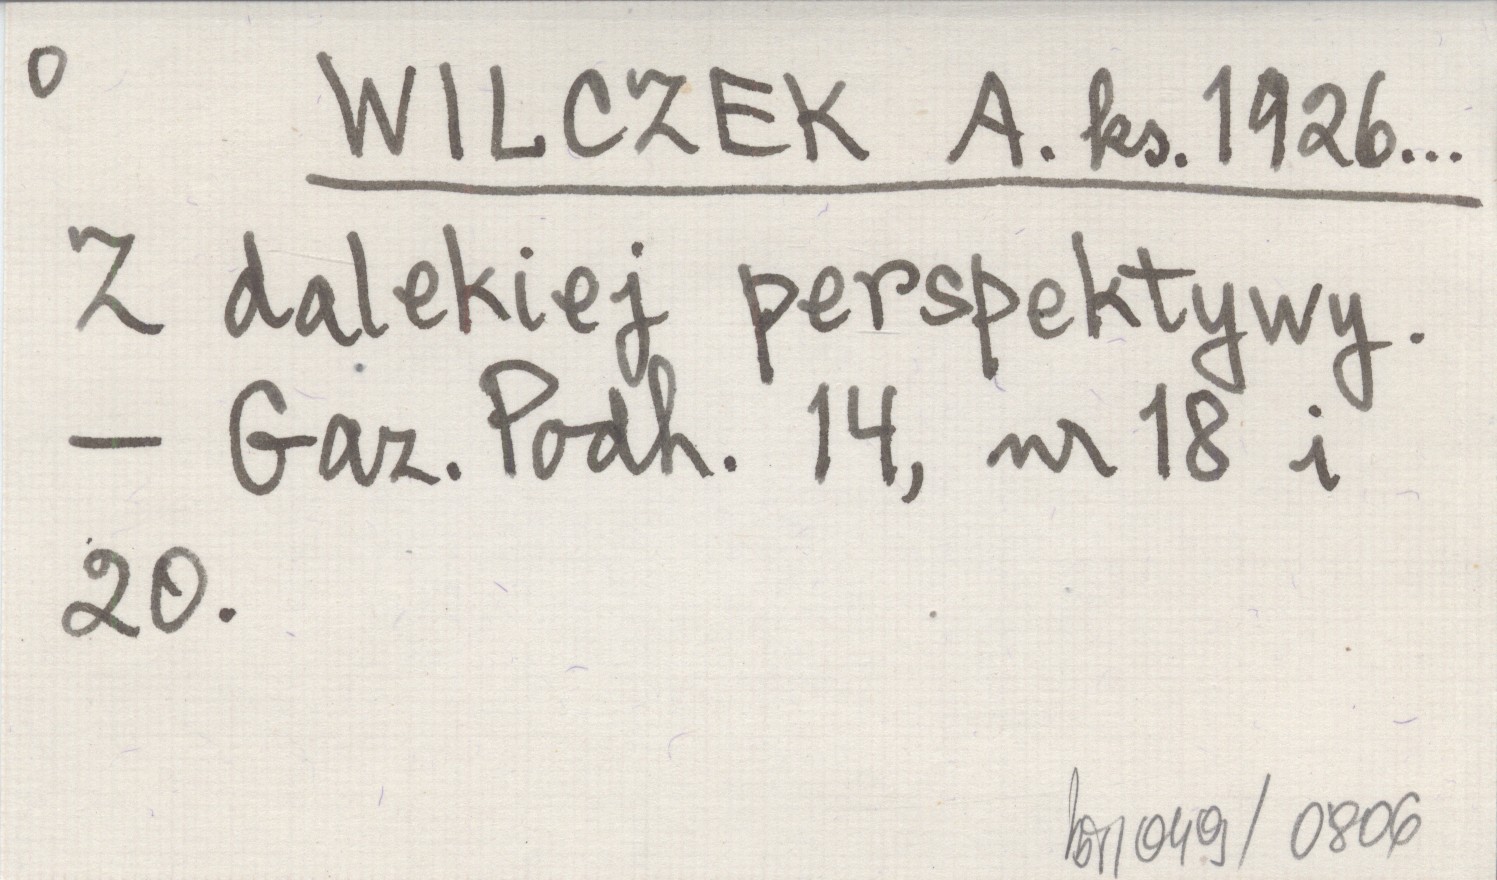 o WILCZEK A. ks. 1926...
Z dalekiej perspektywy.
— Gaz. Podh. 14, nr 18 i
20.
049/0806